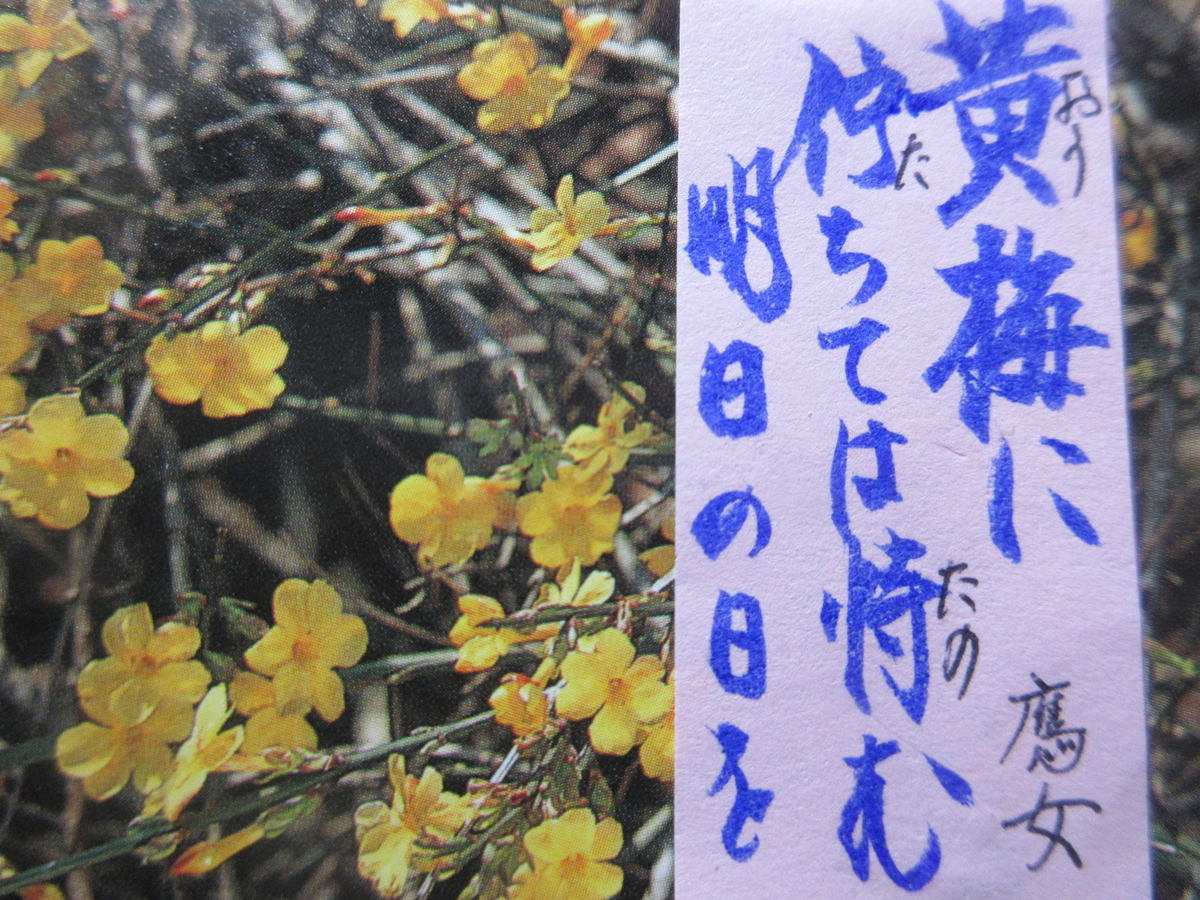 黄梅に
おう
佇ちては恃む
た
たの
明日の日を
鷹女